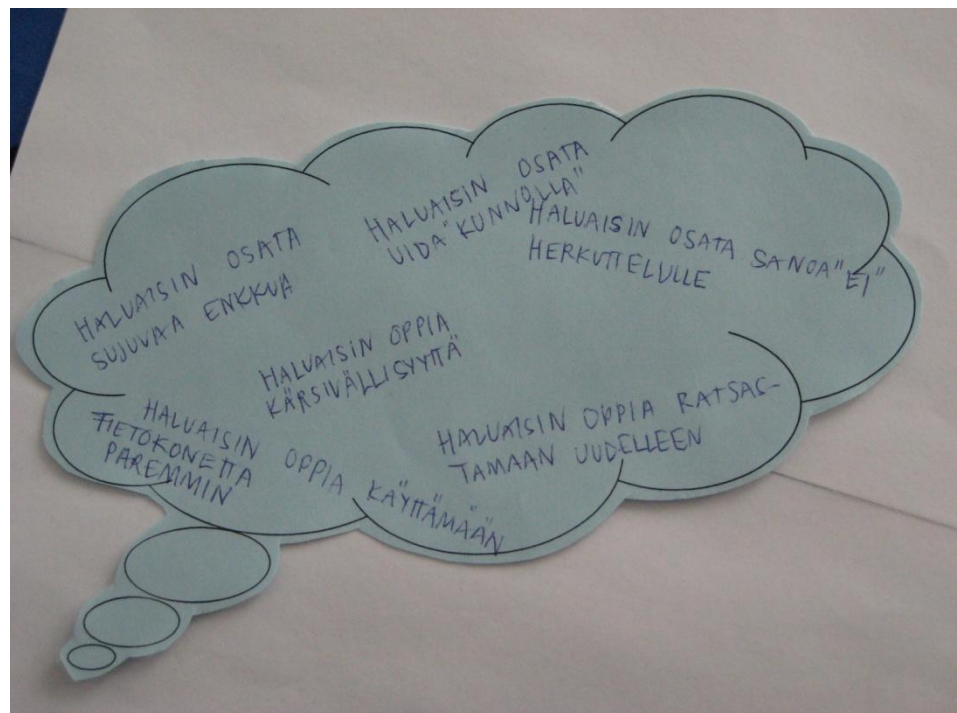 HALUAISIN OSATA
SUJUVAA ENKKUA
HALUAISIN OSATA
UIDA "KUNNOLLA"
HALUAISIN OSATA SANOA "EI"
HERKUTTELULLE
HALUAISIN OPPIA
KÄRSIVÄLLISYYTTÄ
HALUAISIN OPPIA KÄYTTÄMÄÄN
TIETOKONETTA
PAREMMIN
HALUAISIN OPPIA RATSAS-
TAMAAN UUDELLEEN